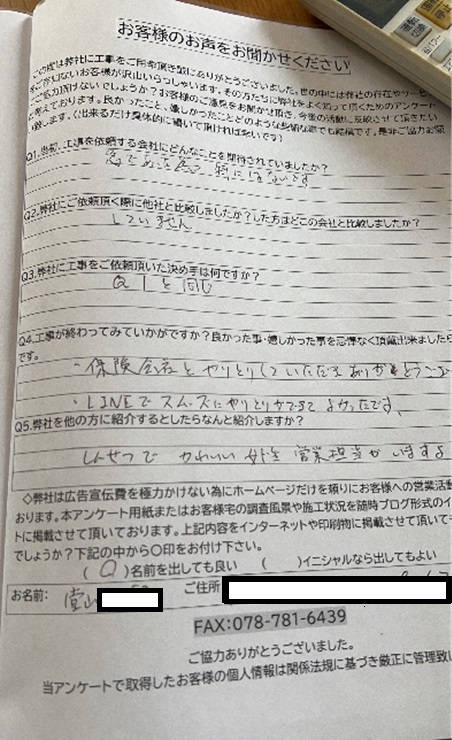 お客様のお声をお聞かせください
この度は弊社に工事をご用命頂き誠にありがとうございました。世の中には他社の存在や
ご存じないお客様が沢山いらっしゃいます。その方たちに弊社をよく知って頂くためのアンケート
ご協力頂けないでしょうか？お客様のご意見をお聞かせ頂き、今後の活動に反映させて頂きたい
と考えております。良かったこと、嬉しかったことどのような些細な事でも結構です。是非ご協力お
致します。（出来るだけ具体的に書いて頂ければ幸いです）
Q1.当初、工事を依頼する会社にどんなことを期待されていましたか？
急であった為 特にはないです
Q2.弊社にご依頼頂く際に他社と比較しましたか？したかたはどこの会社と比較しましたか？
していません
Q3.弊社に工事をご依頼頂いた決め手は何ですか？
Q1と同じ
Q4.工事が終わってみていかがですか？良かった事・嬉しかった事を忌憚なく頂戴出来ましたら
です。
・保険会社とやりとりしていただきありがとうござ
・LINEでスムーズにやりとりができてよかったです。
Q5.弊社を他の方に紹介するとしたらなんと紹介しますか？
しんせつで かわいい 営業担当がいますよ
◇弊社は広告宣伝費を極力かけない為にホームページだけを頼りにお客様への営業活動
おります。本アンケート用紙またはお客様宅の調査風景や施工状況を随時ブログ形式のイ
トに掲載させて頂いております。上記内容をインターネットや印刷物に掲載させて頂いても
でしょうか？下記の中から○印をお付け下さい。
（ ○ ）名前を出しても良い （ ）イニシャルなら出してもよい
お名前： 堂山 ご住所
FAX:078-781-6439
ご協力ありがとうございました。
当アンケートで取得したお客様の個人情報は関係法規に基づき厳正に管理致し